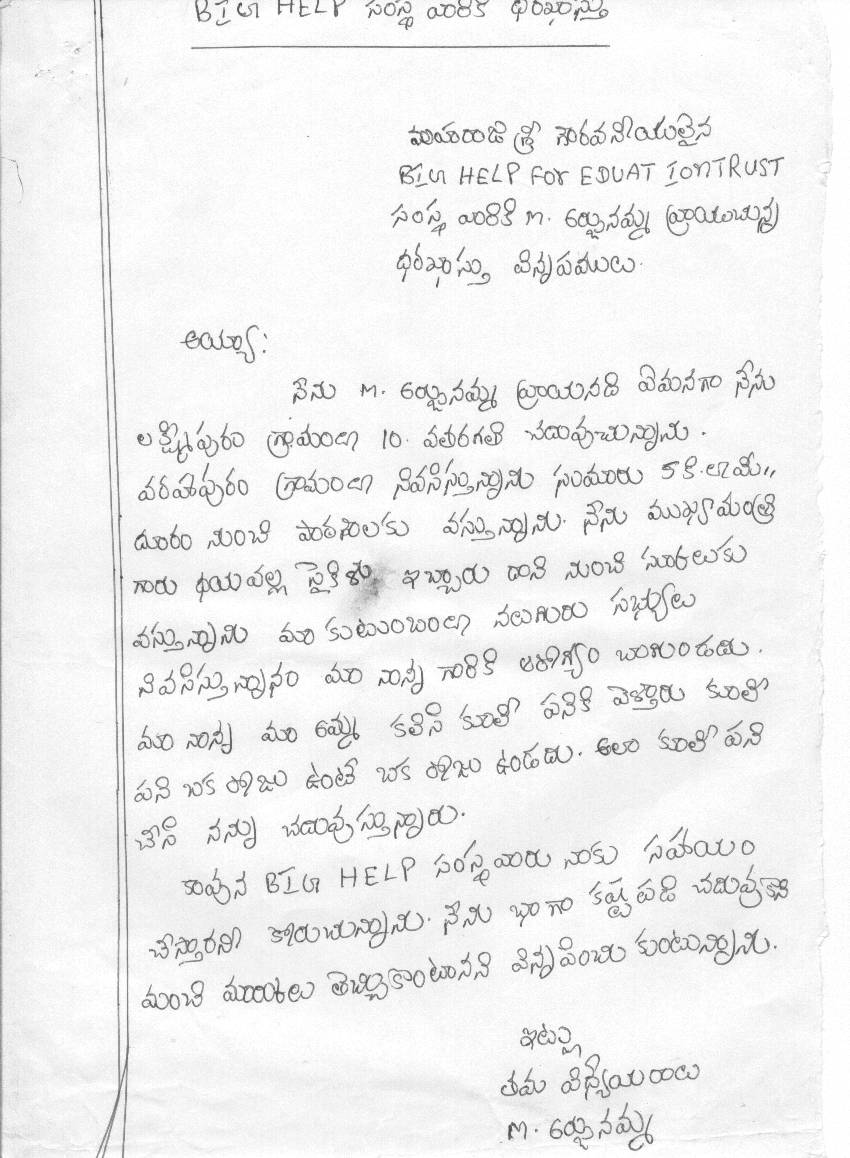 BIG HELP సంస్థ వారికి ధరఖాస్తు
మహారాజ శ్రీ గౌరవనీయులైన
BIG HELP FOR EDUAT IONTRUST
సంస్థ వారికి M. అర్జునమ్మ వ్రాయుచున్న
ధరఖాస్తు విన్నపములు.
అయ్యా:
నేను M. అర్జునమ్మ వ్రాయునది ఏమనగా నేను
లక్ష్మీపురం గ్రామంలో 10. వతరగతి చదువుచున్నాను.
వరహాపురం గ్రామంలో నివసిస్తున్నాను సుమారు 5 కి.లామీ,,
దూరం నుంచి పాఠశాలకు వస్తున్నాను. నేను ముఖ్యామంత్రి
గారు ధయవల్ల సైకిళు ఇచ్చారు దాని నుంచి స్కూలుకు
వస్తున్నాను మా కుటుంబంలో నలుగురు సభ్యులు
నివసిస్తున్నాం మా నాన్న గారికి ఆరోగ్యం బాగుండదు.
మా నాన్న మా అమ్మ కలిసి కూలీ పనికి వెళ్తారు కూలీ
పని ఒక రోజు ఉంటే ఒక రోజు ఉండదు. అలా కూలీ పని
చేసి నన్ను చదువుస్తున్నారు.
కావున BIG HELP సంస్థవారు నాకు సహాయం
చేస్తారని కోరుచున్నాను. నేను భాగా కష్టపడి చదువుకొని
మంచి మార్కులు తెచ్చికొంటానని విన్నపించు కుంటున్నాను.
ఇట్లు
తమ విధ్యేయురాలు
M. అర్జునమ్మ